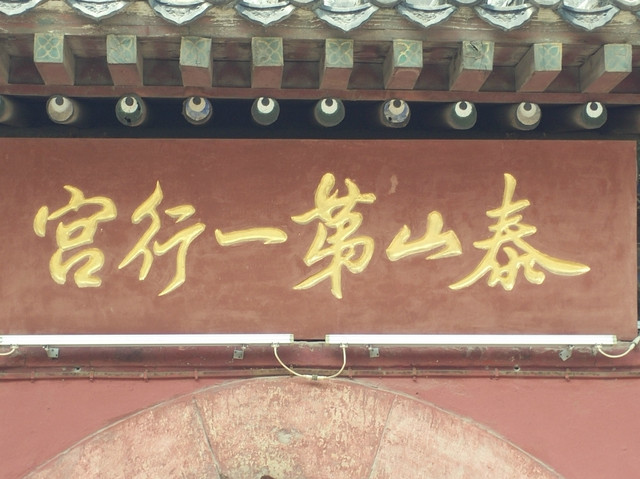 泰山第一行宫